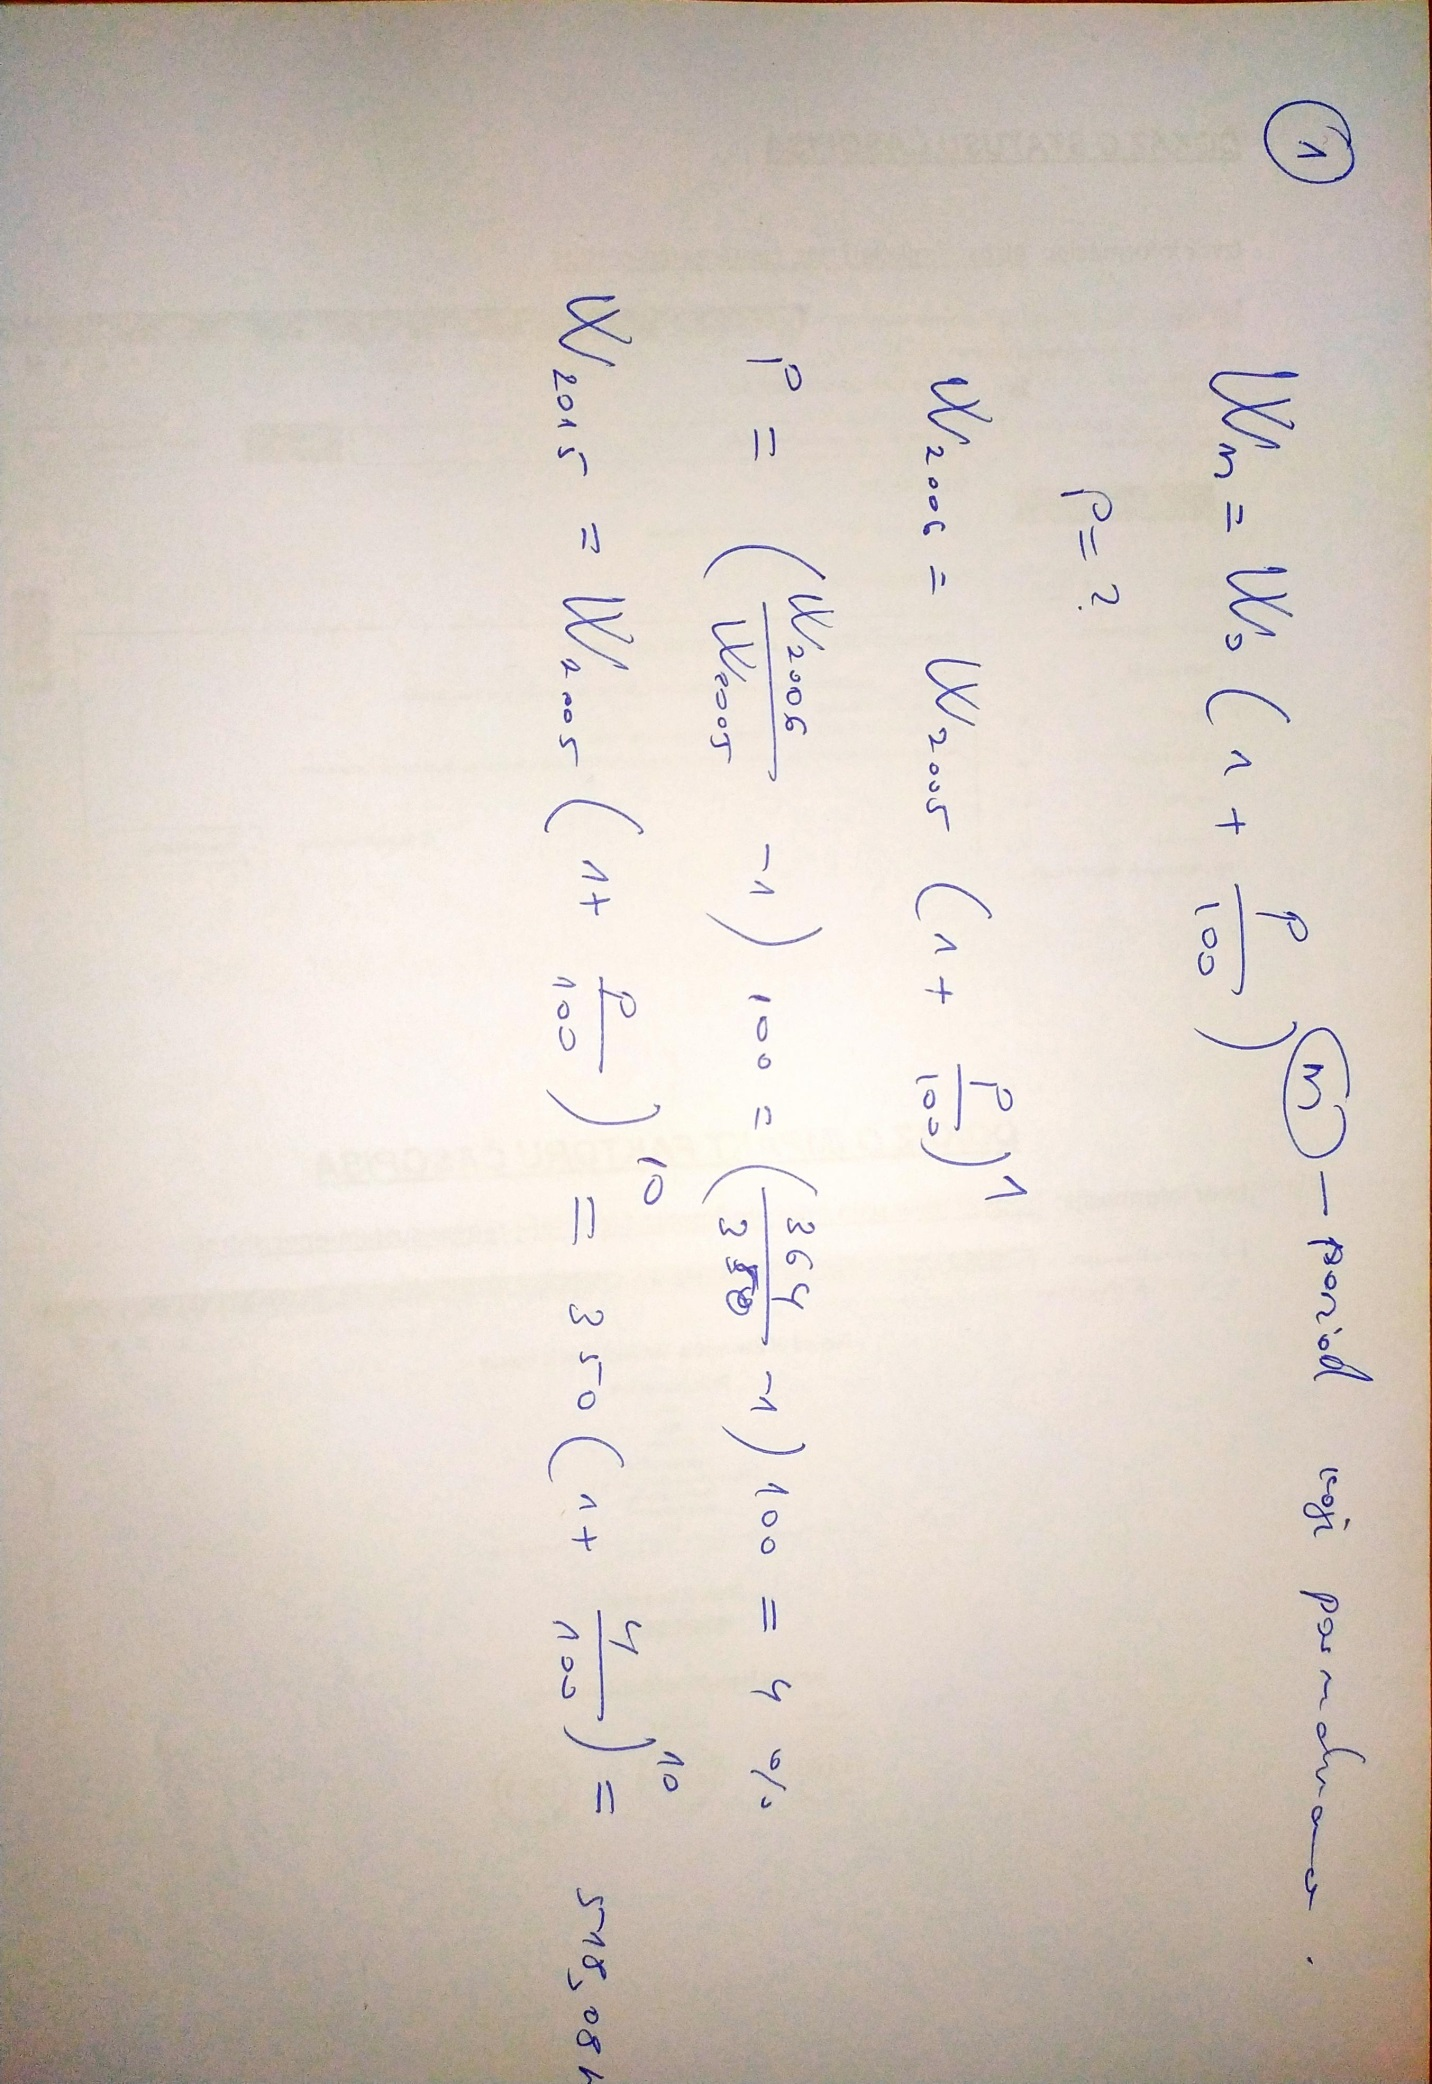 1
Wn = W0 (1 + p/100)^n – period koji posmatramo.
p = ?
W2006 = W2005 (1 + p/100)^1
p = (W2006/W2005 - 1) 100 = (364/350 - 1) 100 = 4 %
W2015 = W2005 (1 + p/100)^10 = 350 (1 + 4/100)^10 = 518,08